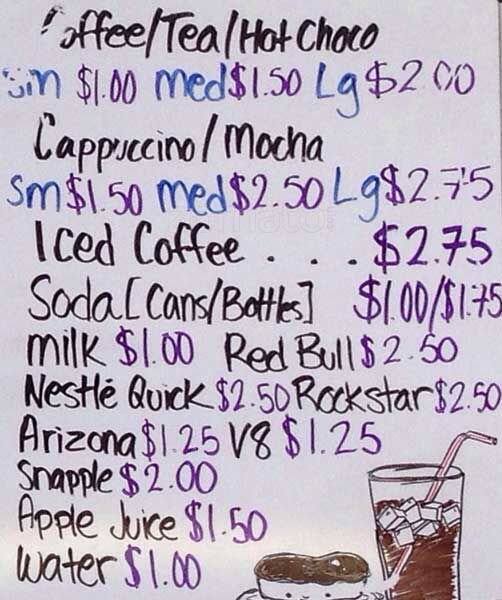 Coffee/Tea/Hot Choco
Sm $1.00 med $1.50 Lg $2.00
Cappuccino/Mocha
Sm $1.50 med $2.50 Lg $2.75
Iced Coffee . . . . $2.75
Soda [Cans/Bottles] $1.00/$1.75
milk $1.00 Red Bull $2.50
Nestlé Quick $2.50 Rockstar $2.50
Arizona $1.25 V8 $1.25
Snapple $2.00
Apple Juice $1.50
Water $1.00